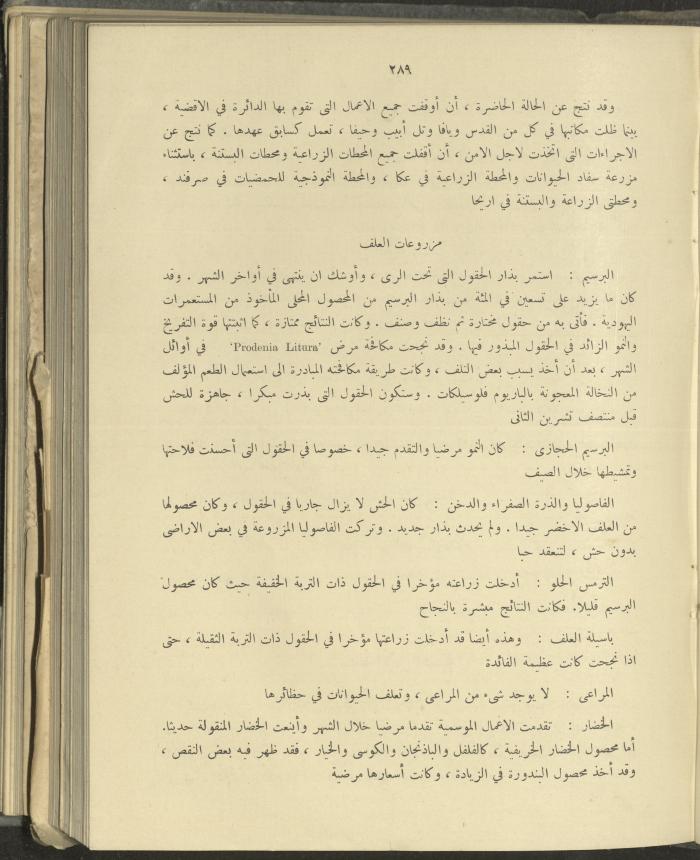 ٢٨٩
وقد نتج عن الحالة الحاضرة ، أن أوقفت جميع الاعمال التى تقوم بها الدائرة في الاقضية ،
بينما ظلت مكاتبها في كل من القدس ويافا وتل أبيب وحيفا ، تعمل كسابق عهدها . كما نتج عن
الاجراءات التى اتخذت لاجل الامن ، أن أقفلت جميع المحطات الزراعية ومحطات البستنة ، باستثناء
مزرعة سفاد الحيوانات والمحطة الزراعية في عكا ، والمحطة النموذجية للحمضيات في صرفند ،
ومحطتى الزراعة والبستنة في اريحا
مزروعات العلف
البرسيم : استمر بذار الحقول التى تحت الرى ، وأوشك ان ينتهى في أواخر الشهر . وقد
كان ما يزيد على تسعين في المئة من بذار البرسيم من المحصول المحلى المأخوذ من المستعمرات
اليهودية . فأتى به من حقول مختارة ثم نظف وصنف . وكانت النتائج ممتازة ، كما اثبتتها قوة التفريخ
والنمو الزائد في الحقول المبذور فيها . وقد نجحت مكافحة مرض 'Prodenia Litura' في أوائل
الشهر ، بعد أن أخذ يسبب بعض التلف ، وكانت طريقة مكافحته المبادرة الى استعمال الطعم المؤلف
من النخالة المعجونة بالباريوم فلوسيلكات . وستكون الحقول التى بذرت مبكرا ، جاهزة للحش
قبل منتصف تشرين الثانى
البرسيم الحجازى : كان النمو مرضيا والتقدم جيدا ، خصوصا في الحقول التى أحسنت فلاحتها
وتمشيطها خلال الصيف
الفاصوليا والذرة الصفراء والدخن : كان الحش لا يزال جاريا في الحقول ، وكان محصولها
من العلف الاخضر جيدا . ولم يحدث بذار جديد . وتركت الفاصوليا المزروعة في بعض الاراضى
بدون حش ، لتنعقد حبا
الترمس الحلو : أدخلت زراعته مؤخرا في الحقول ذات التربة الخفيفة حيث كان محصول
البرسيم قليلا. فكانت النتائج مبشرة بالنجاح
باسيلة العلف : وهذه أيضا قد أدخلت زراعتها مؤخرا في الحقول ذات التربة الثقيلة ، حتى
اذا نجحت كانت عظيمة الفائدة
المراعى : لا يوجد شىء من المراعى ، وتعلف الحيوانات في حظائرها
الخضار : تقدمت الاعمال الموسمية تقدما مرضيا خلال الشهر وأينعت الخضار المنقولة حديثا.
أما محصول الخضار الخريفية ، كالفلفل والباذنجان والكوسى والخيار ، فقد ظهر فيه بعض النقص ،
وقد أخذ محصول البندورة في الزيادة ، وكانت أسعارها مرضية